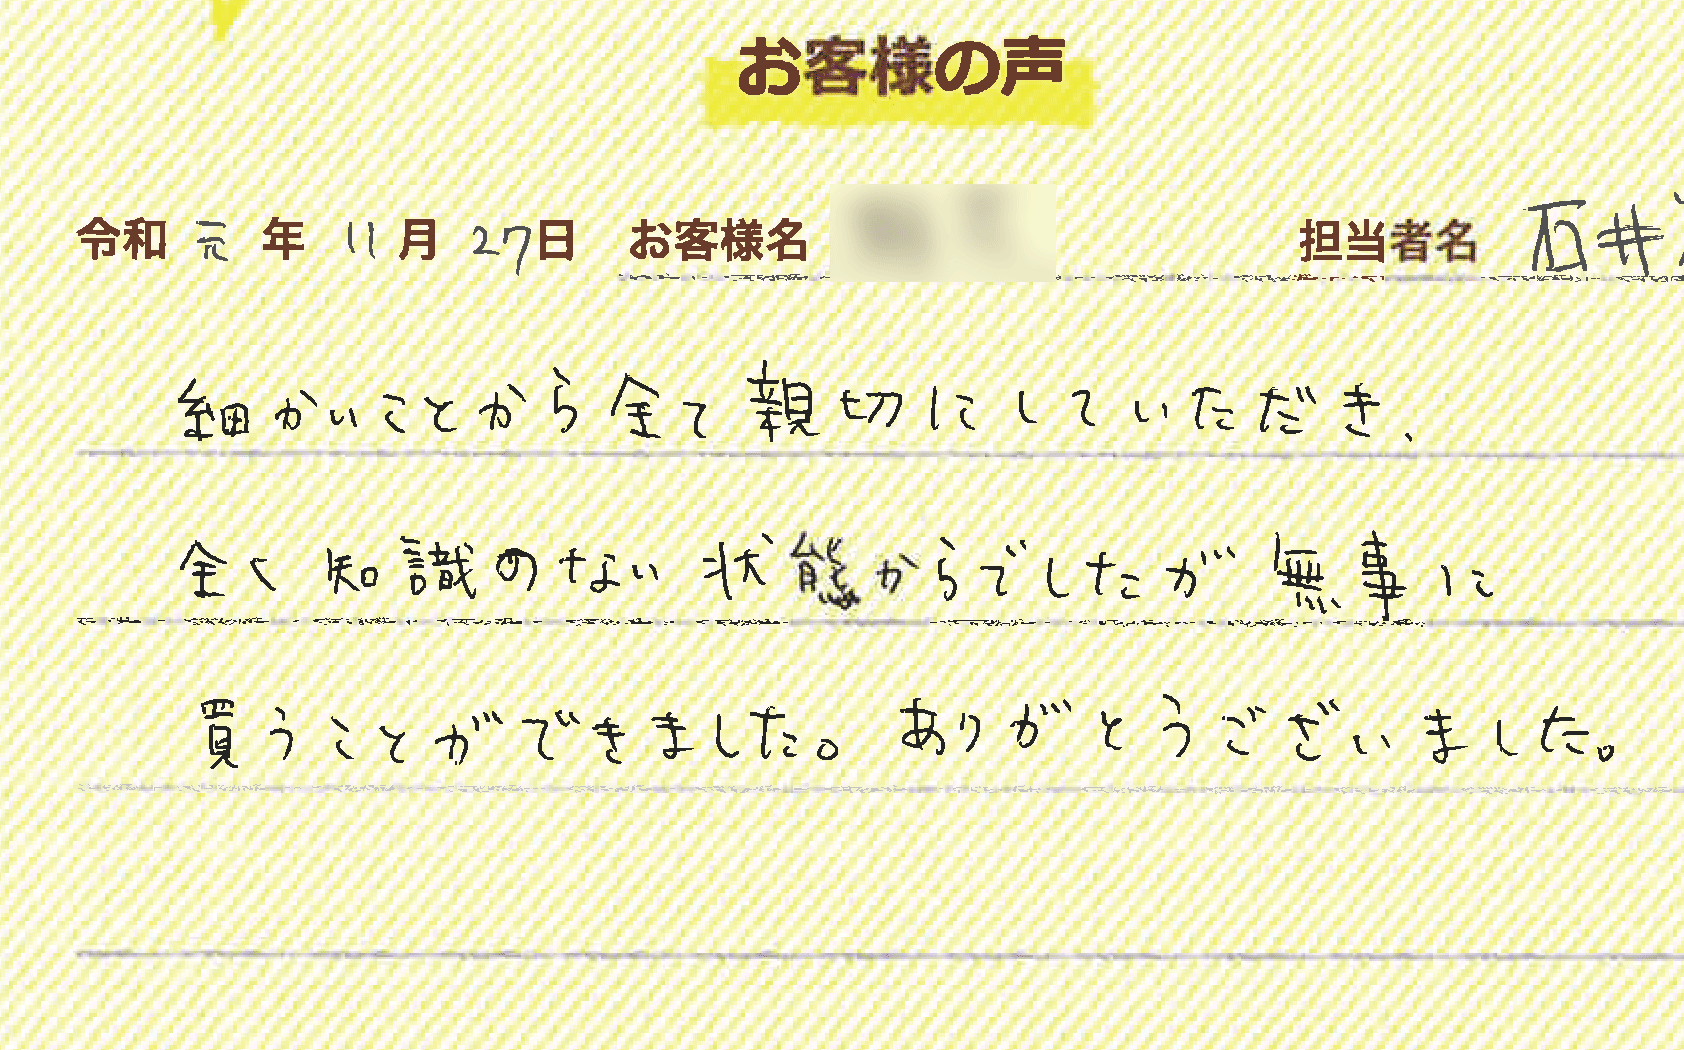 お客様の声
令和 元 年 11 月 27 日 お客様名 担当者名 石井
細かいことから全て親切にしていただき、
全く知識のない状態からでしたが無事に
買うことができました。ありがとうございました。